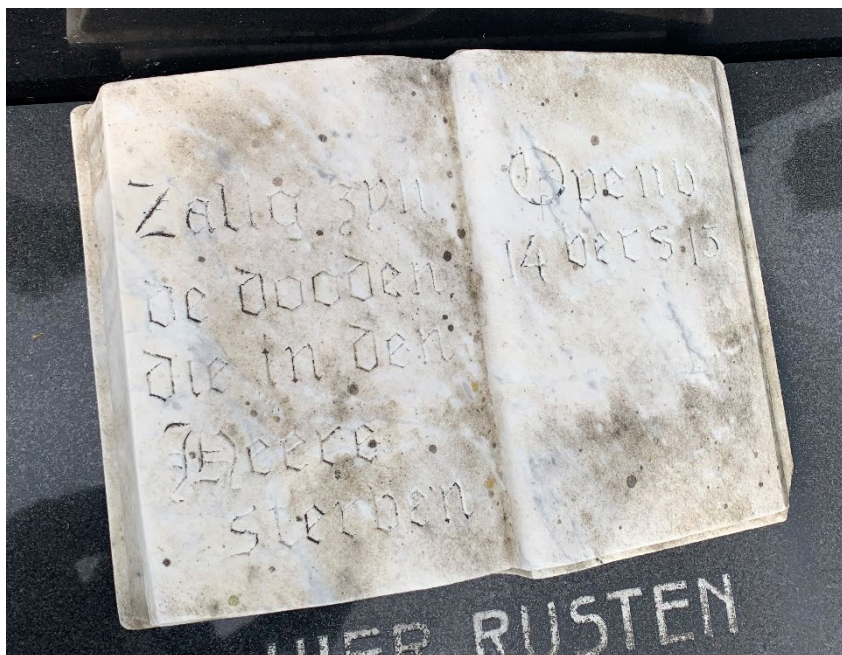 Zalig zyn
de dooden
die in den
Heere
sterven
Openb
14 vers 13
HIER RUSTEN